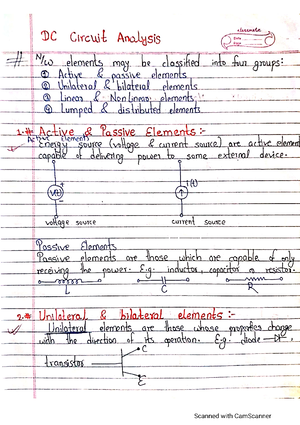 DC Circuit Analysis
N/W elements may be classified into four groups:
① Active & passive elements
② Unilateral & bilateral elements
③ Linear & Non linear elements
④ Lumped & distributed elements.
1.# Active & Passive Elements :-
Active elements
Energy source (voltage & current source) are active element
capable of delivering power to some external device.
V(t)
i(t)
voltage source
current source
Passive Elements
Passive elements are those which are capable of only
receiving the power. E.g. inductor, capacitor & resistor.
L
C
R
2.# Unilateral & bilateral elements :-
Unilateral elements are those whose properties change
with the direction of its operation. E.g. diode
transistor
C
E
Scanned with CamScanner